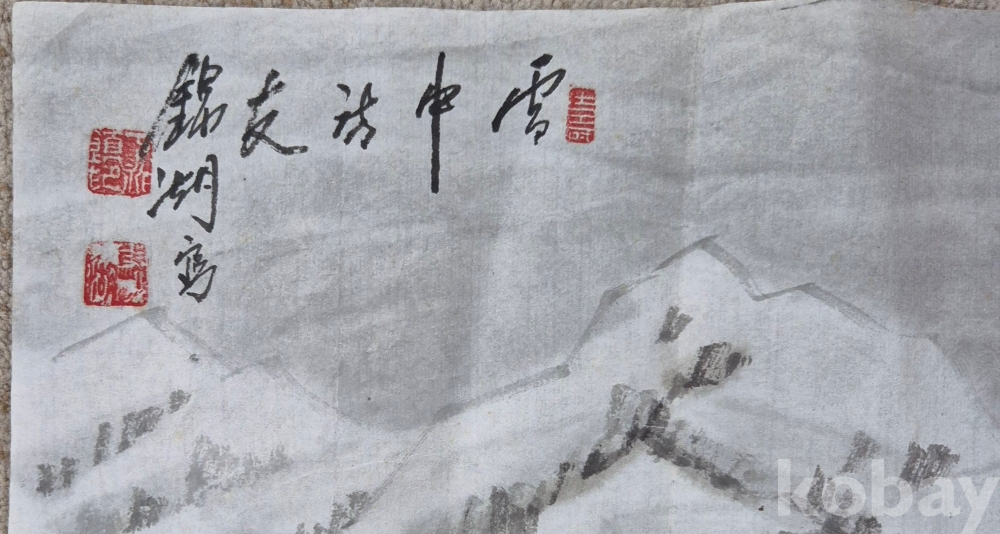 雪中訪友
錦湖寫
kobay